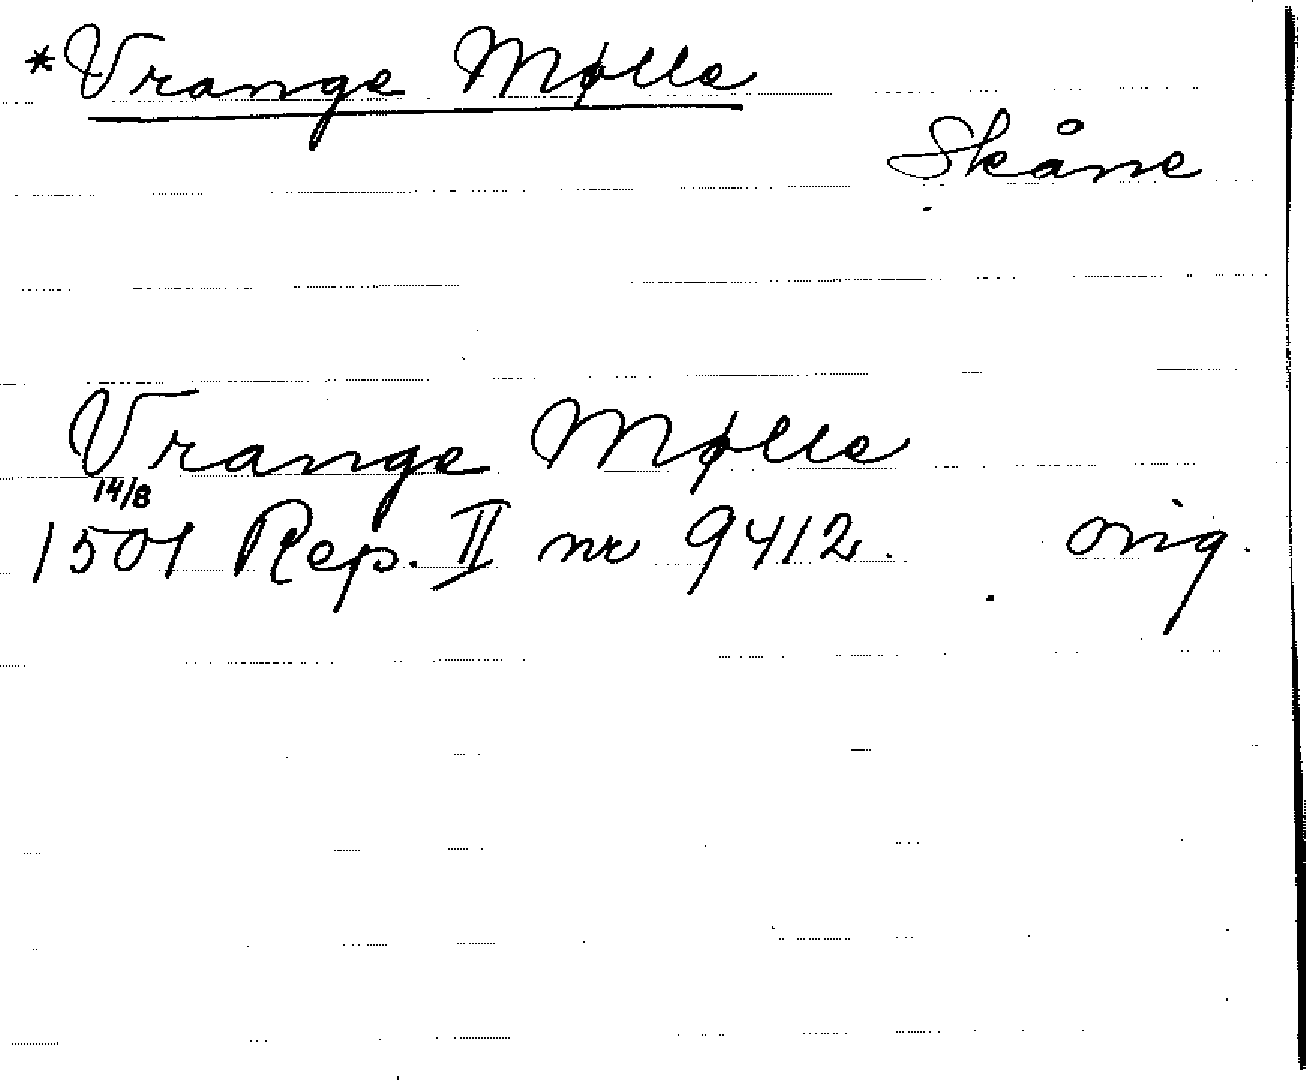 *Vrange Mølle
Skåne
Vrange Mølle
14/8
1501 Rep. II nr 9412. orig.